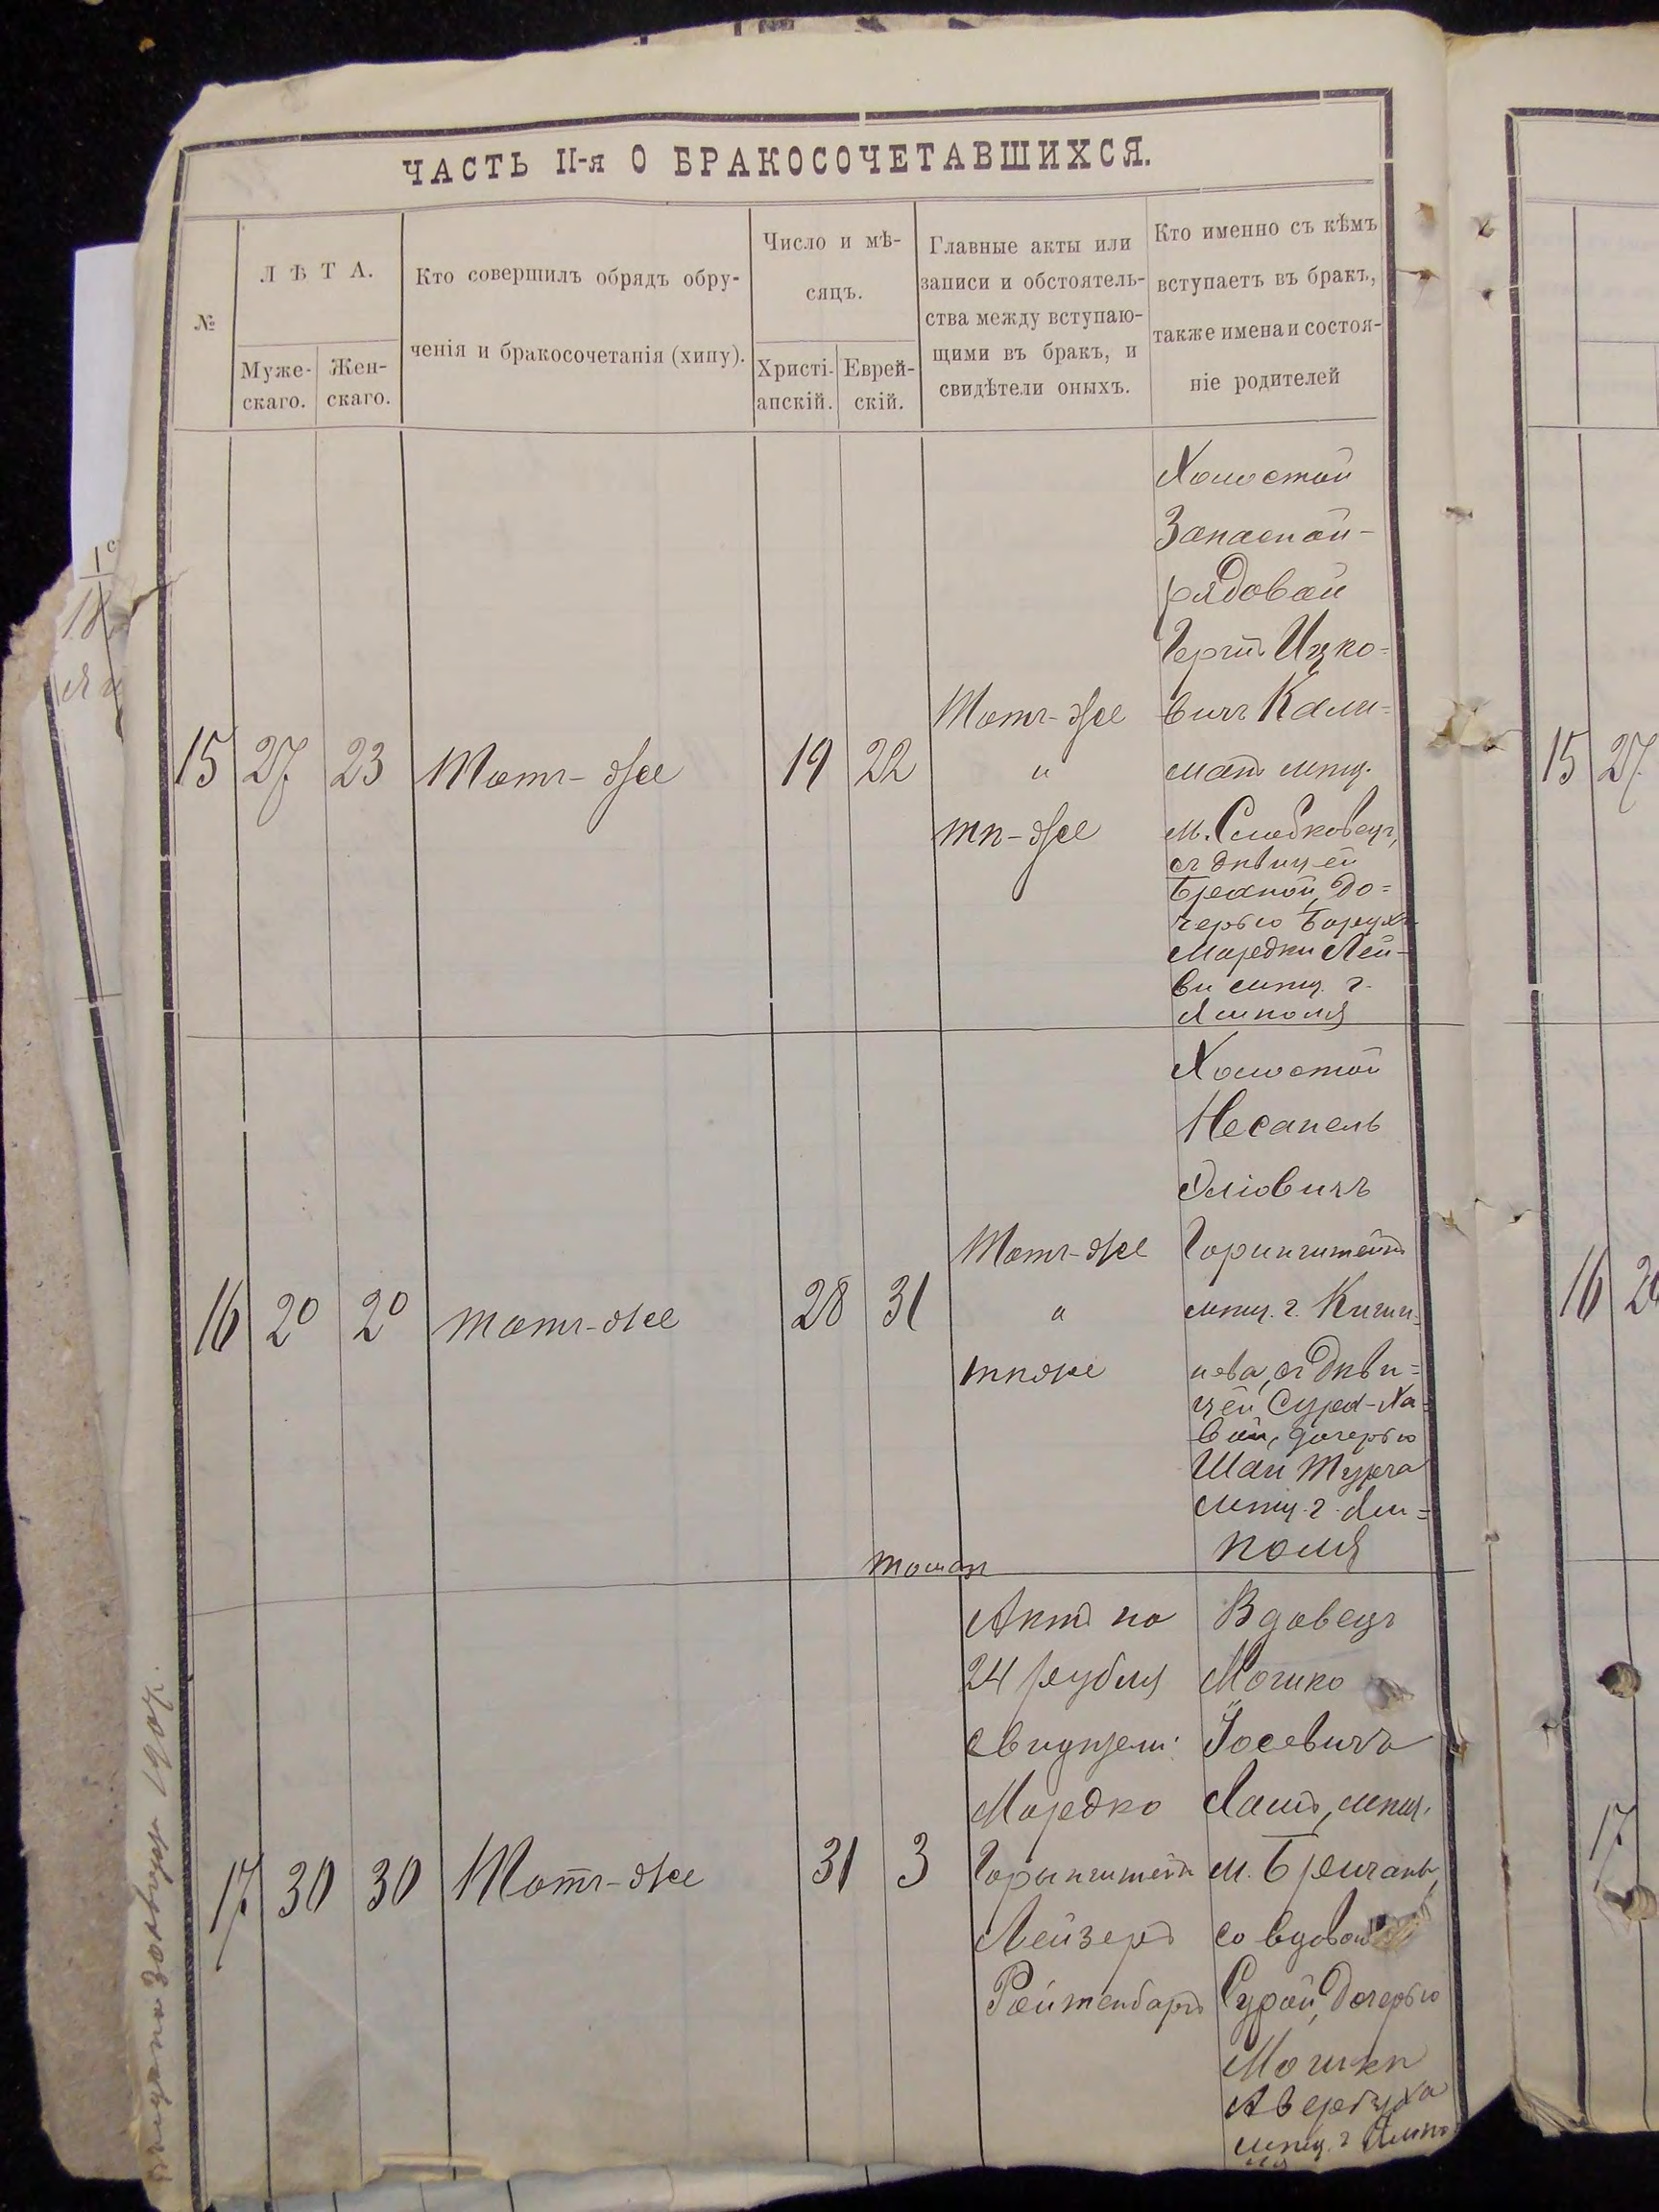 ЧАСТЬ II-я О БРАКОСОЧЕТАВШИХСЯ.
№
ЛѢТА.
Муже-
скаго.
Жен-
скаго.
Кто совершилъ обрядъ обру-
ченія и бракосочетанія (хипу).
Число и мѣ-
сяцъ.
Христі-
анскій.
Еврей-
скій.
Главные акты или
записи и обстоятель-
ства между вступаю-
щими въ бракъ, и
свидѣтели оныхъ.
Кто именно съ кѣмъ
вступаетъ въ бракъ,
также имена и состоя-
ніе родителей
15
27
23
Тотъ-же
19
22
Тотъ-же
"
тѣ-же
Холостой
Запасной-
рядовой
Герш Ицко-
вичъ Кали-
матъ мѣщ.
м.
съ дѣвицей
Брейной, до=
черью Борухъ
Мордки Лей-
би мѣщ. г.
Ямполя
16
20
20
тотъ-же
28
31
Тотъ-же
"
тѣже
Холостой
Несанель
Эліовичъ
Горинштейнъ
мѣщ. г. Киши=
нева, съ дѣви=
цей Сура-Ха=
вой, дочерью
Шаи
мѣщ. г. Ям=
поля
17
30
30
Тотъ-же
31
3
Актъ на
24 рубля
свидѣтели:
Мордко
Горынштейн
Лейзеръ
Ройтенбаргъ
Вдовецъ
Мошко
Іосевичъ
мѣщ.
м. Бричаны,
со вдовой
Сурой, дочерью
Мошки
Авербуха
мѣщ. г. Ямпо
ля
15
27
16
17